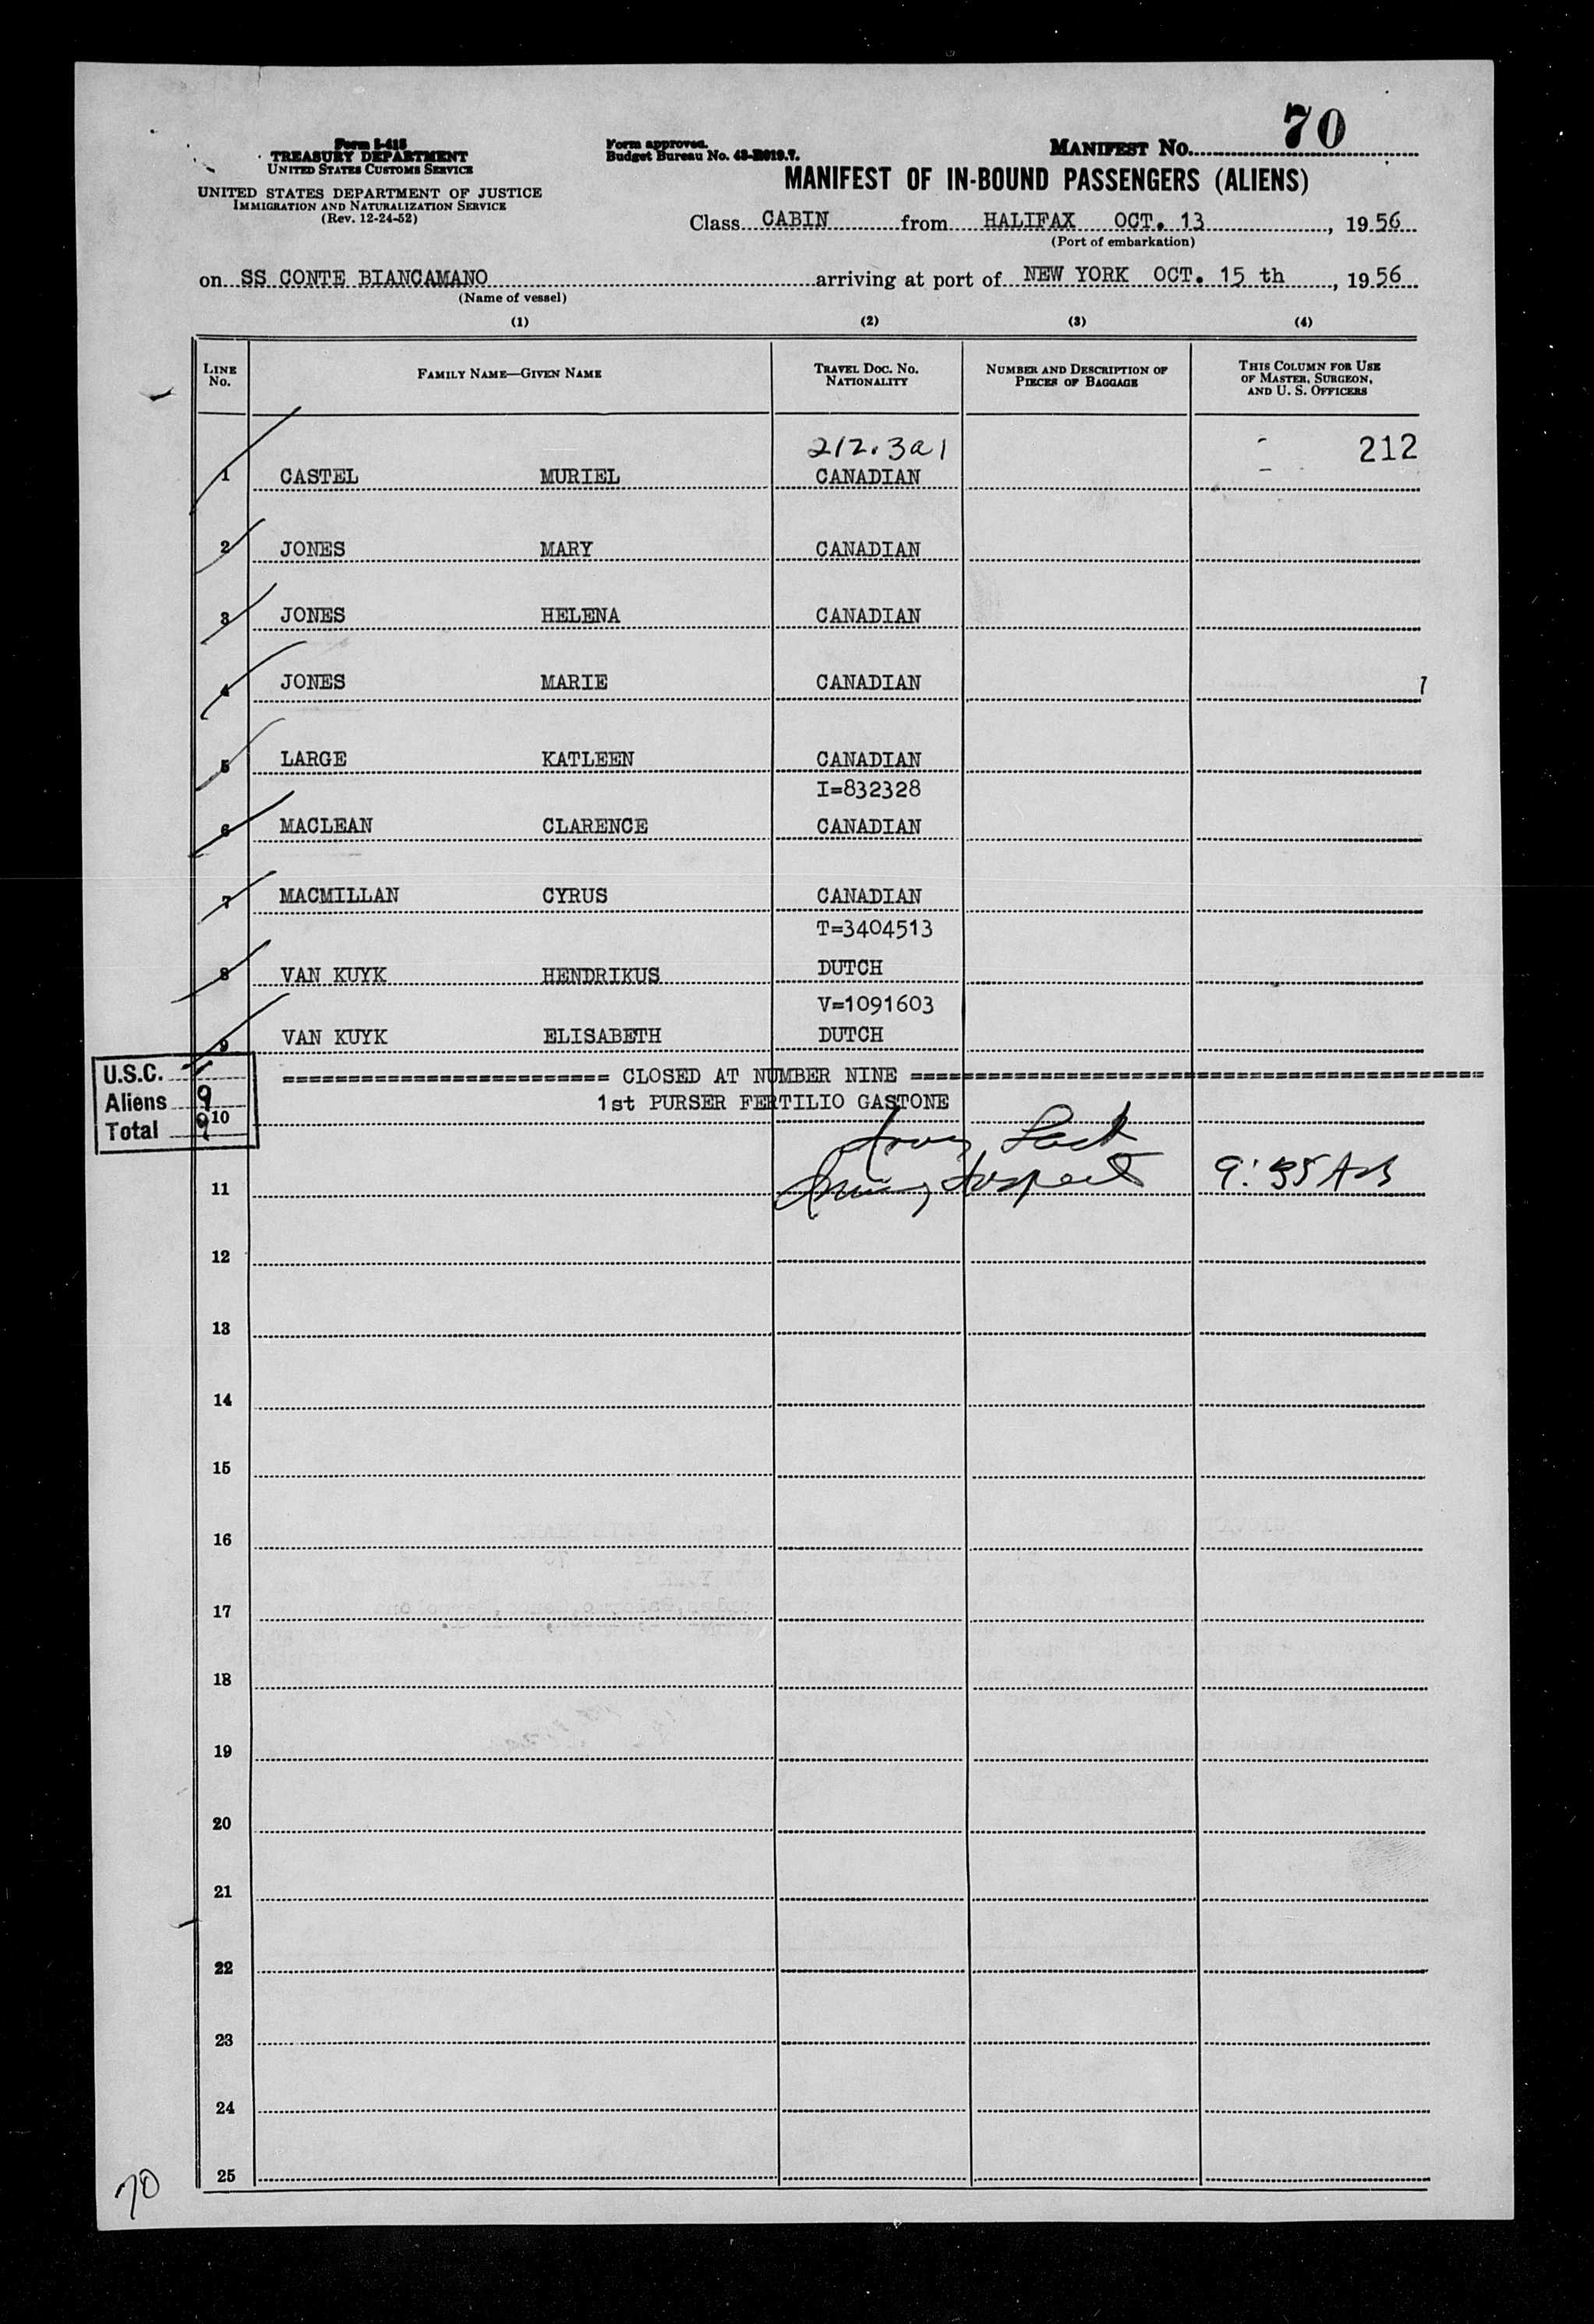 70
Form I-418
TREASURY DEPARTMENT
UNITED STATES CUSTOMS SERVICE
UNITED STATES DEPARTMENT OF JUSTICE
IMMIGRATION AND NATURALIZATION SERVICE
(Rev. 12-24-52)
Form approved.
Budget Bureau No. 43-R019.7.
MANIFEST No.
MANIFEST OF IN-BOUND PASSENGERS (ALIENS)
Class CABIN from HALIFAX OCT. 13, 1956
(Port of embarkation)
on SS CONTE BIANCAMANO arriving at port of NEW YORK OCT. 15 th, 1956
(Name of vessel)
(1) (2) (3) (4)
LINE No. FAMILY NAME—GIVEN NAME TRAVEL DOC. No. NATIONALITY NUMBER AND DESCRIPTION OF PIECES OF BAGGAGE THIS COLUMN FOR USE OF MASTER, SURGEON, AND U. S. OFFICERS
212.3a1 212
1 CASTEL MURIEL CANADIAN
2 JONES MARY CANADIAN
3 JONES HELENA CANADIAN
4 JONES MARIE CANADIAN
5 LARGE KATLEEN CANADIAN
I=832328
6 MACLEAN CLARENCE CANADIAN
7 MACMILLAN CYRUS CANADIAN
T=3404513
8 VAN KUYK HENDRIKUS DUTCH
V=1091603
9 VAN KUYK ELISABETH DUTCH
U.S.C.
========================= CLOSED AT NUMBER NINE ============================================
Aliens 9
1st PURSER FERTILIO GASTONE
10
Total 9
11
12
13
14
15
16
17
18
19
20
21
22
23
24
25
70